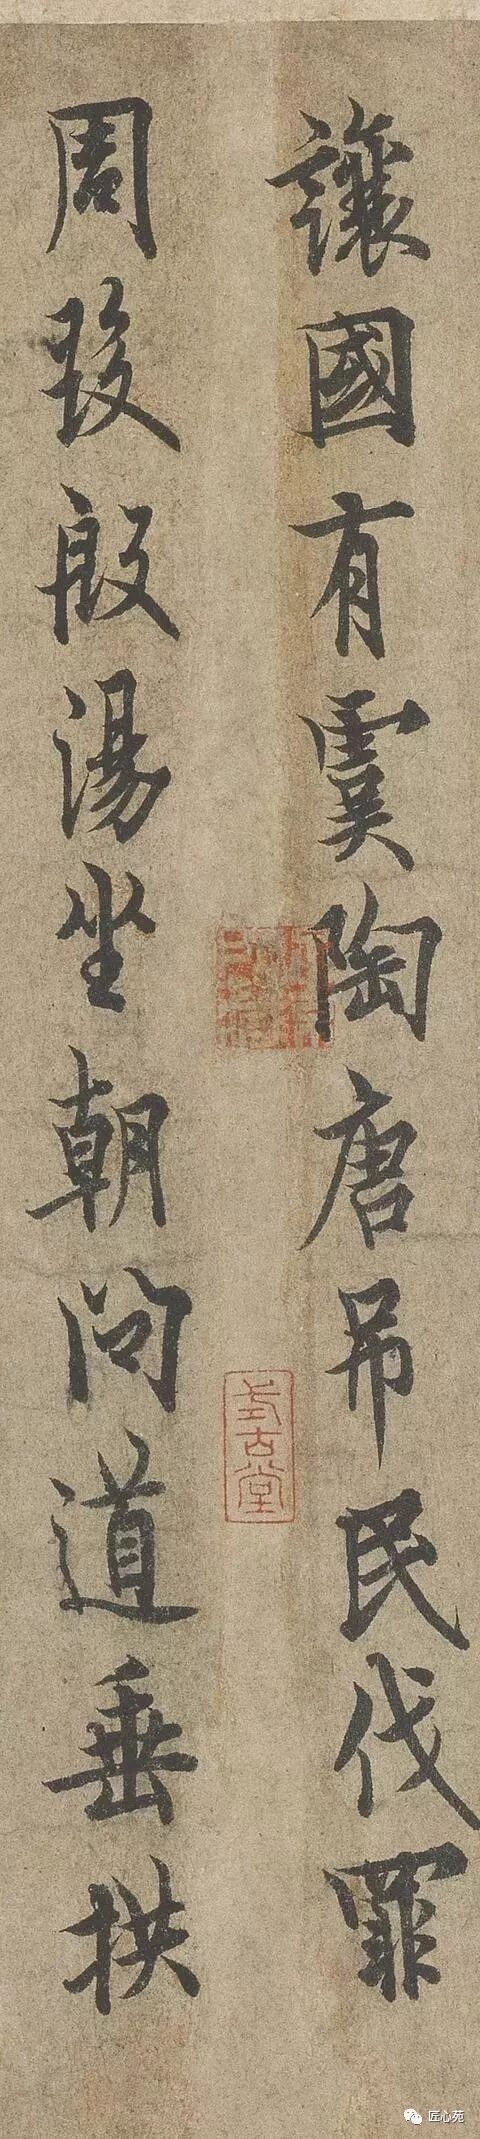 讓國有虞陶唐吊民伐罪
周發殷湯坐朝問道垂拱
式古堂
匠心苑